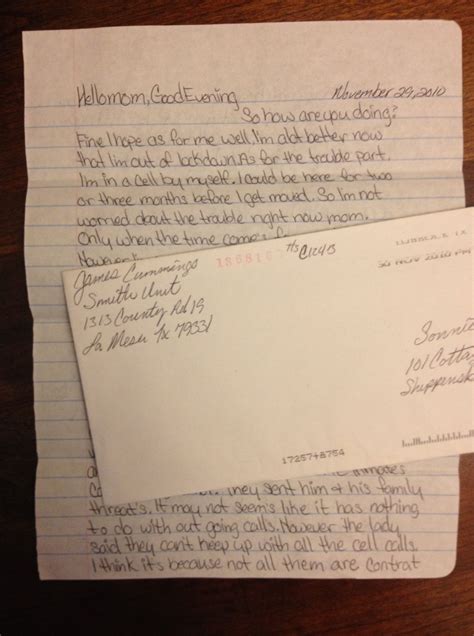 Hello mom, Good Evening
November 29, 2010
So how are you doing?
Fine I hope as for me well, I'm alot better now
that I'm out of lockdown. As for the trouble part.
I'm in a cell by myself. I could be here for two
or three months before I get moved. So I'm not
worried about the trouble right now mom.
Only when the time comes
However
James Cummings
Smith Unit
1313 County Rd 19
La Mesa Tx 79331
30 NOV 2010 PM
Sonni
101 Cotta
Shippens
1725748754
They sent him & his family
threat's. It may not seem's like it has nothing
to do with out going calls. However the lady
said they can't keep up with all the cell calls.
I think it's because not all them are contrat